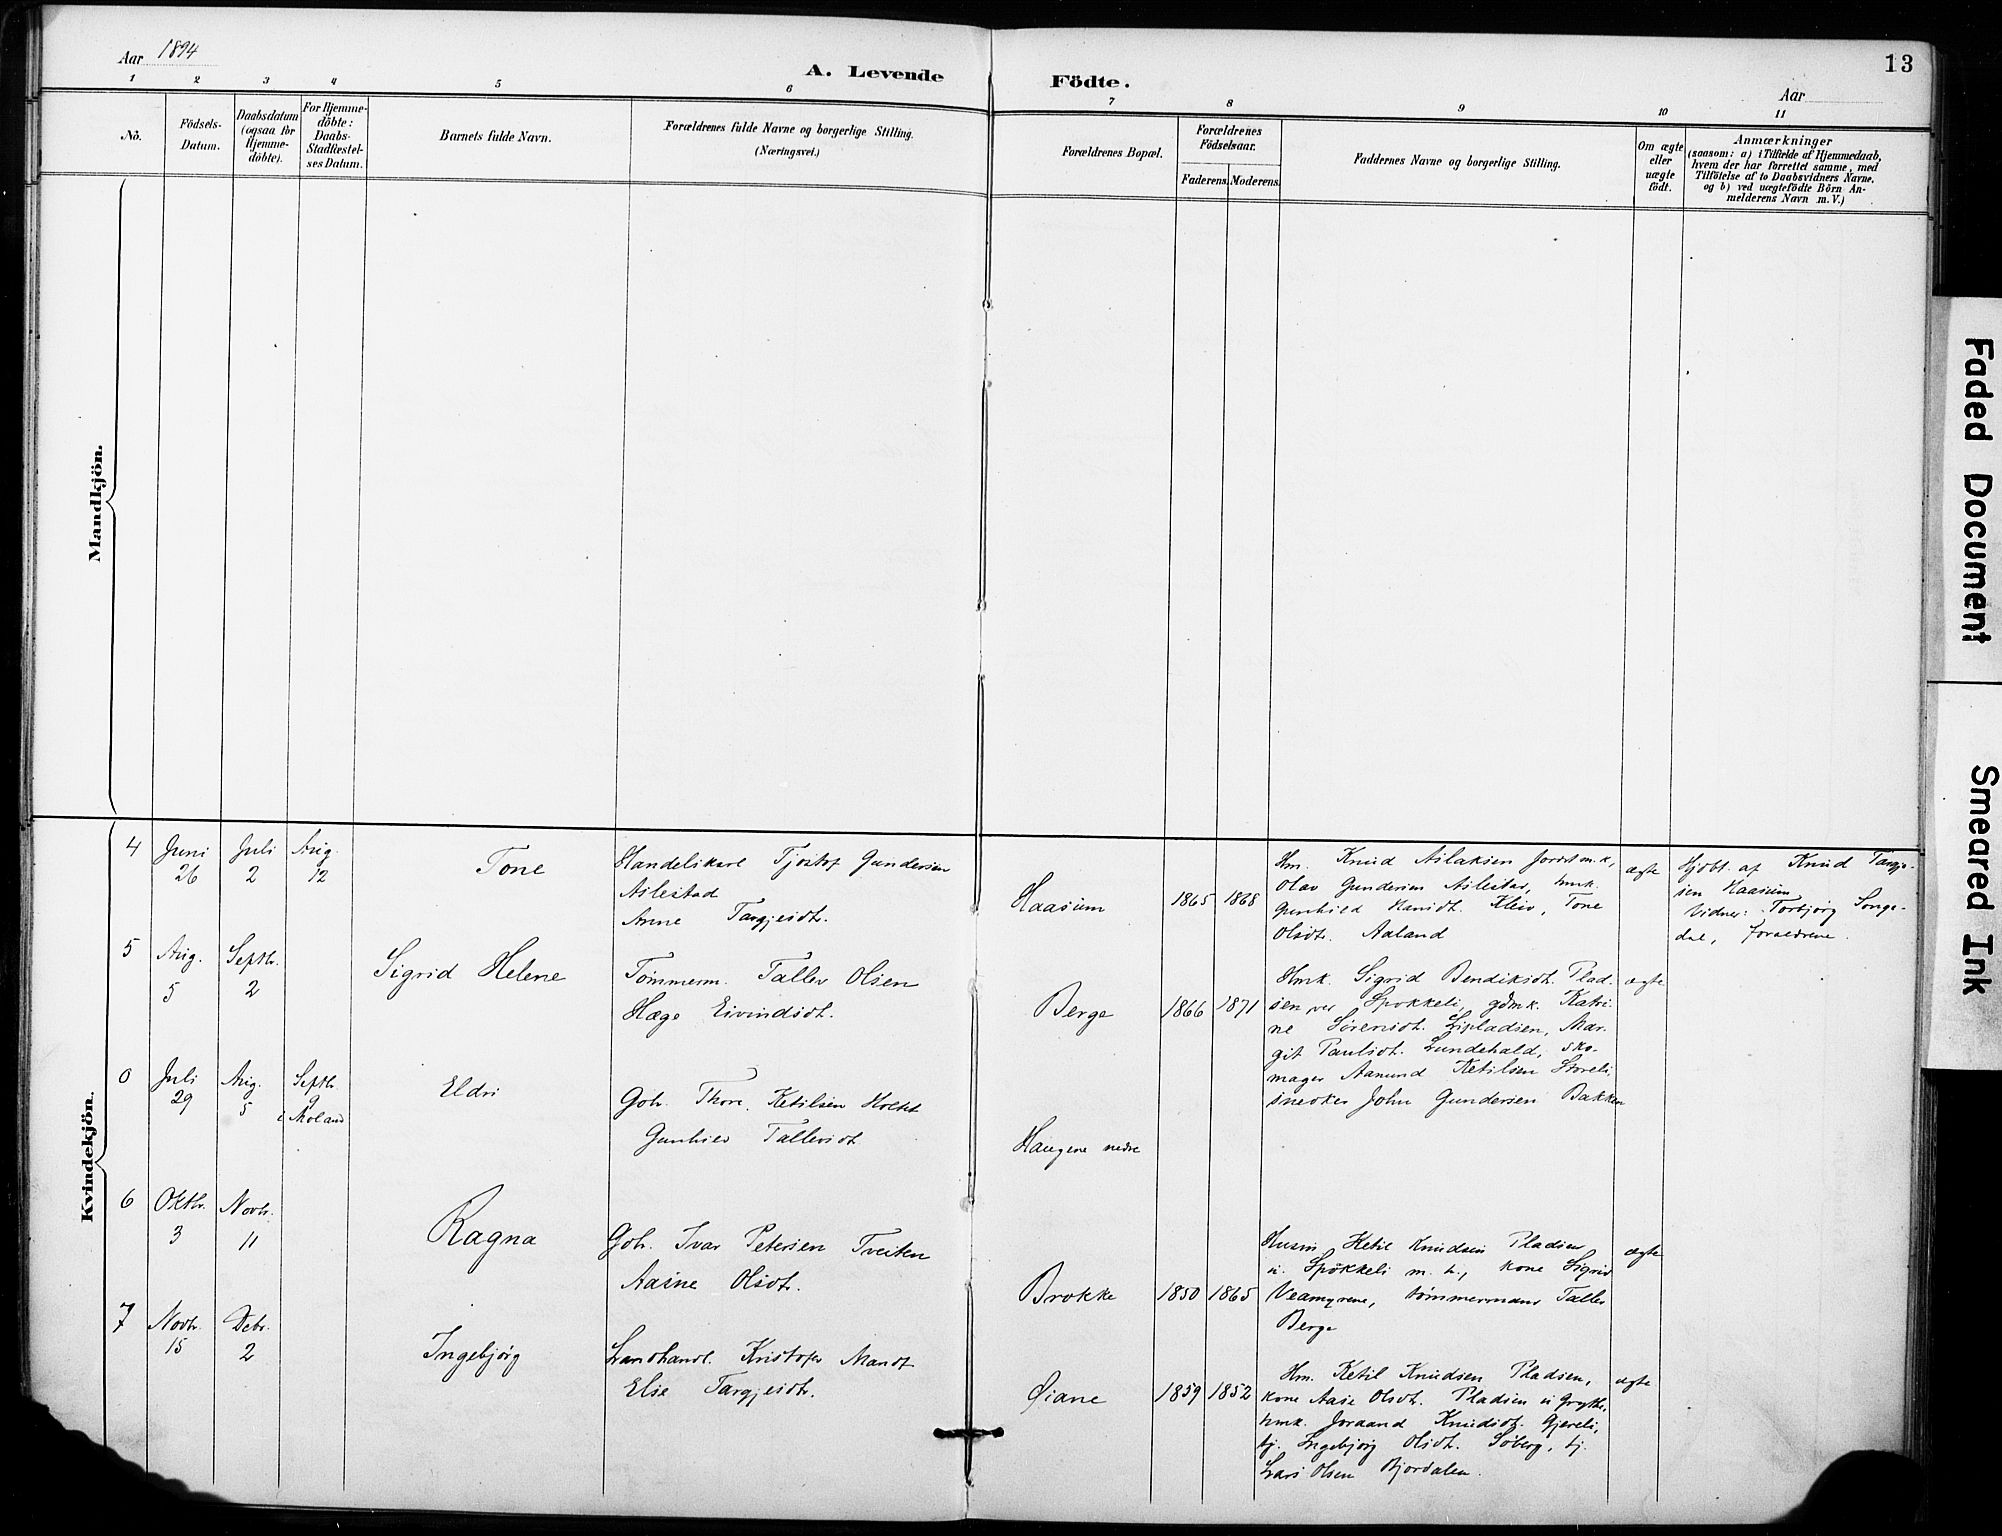 Aar 1894
A. Levende Födte.
13
Aar
1 2 3 4 5 6 7 8 9 10 11
No.
Födsels-
Datum.
Daabsdatum
(ogsaa for
Hjemme-
döbte).
For Hjemme-
döbte:
Daabs-
Stadfæstel-
ses Datum.
Barnets fulde Navn.
Forældrenes fulde Navne og borgerlige Stilling.
(Næringsvei.)
Forældrenes Bopæl.
Forældrenes
Födselsaar.
Faderens. Moderens.
Faddernes Navne og borgerlige Stilling.
Om ægte
eller
uægte
födt.
Anmærkninger
(saasom: a) i Tilfælde af Hjemmedaab,
hvem der har forrettet samme, med
Tilföielse af to Daabsvidners Navne,
og b) ved uægtefödte Börn An-
melderens Navn m.V.)
Mandkjön.
Kvindekjön.
4
Juni
26
Juli
2
Aug.
12
Tone
Handelskarl Tjostof Gundersen
Aslestad
Anne Targjeisdt.
Haasum
1865 1868
Hm. Knud Aslaksen
Olav Gundersen Aslestad, hmk.
Gunhild Kleiv, Tone
Olsdt. Aaland
ægte
Hjdbt. af Knud Targje-
sen Haasum
Vidner: Torbjørg Songe-
dal, forældrene.
5
Aug.
5
Septbr.
2
Sigrid Helene
Tømmerm. Tallev Olsen
Hæge Eivindsdt.
Berge
1866 1871
Hmk. Sigrid Bendiksdt. Plad-
sen ver Spokkeli, gdmk. Katri-
ne Sørensdt. Lipladsen, Mar-
git Paulsdt. Lundehald, sko-
mager Aanund Ketilsen Storeli
snedker John Gundersen Bakken
ægte
0
Juli
29
Aug.
5
Septbr.
9
i Moland
Eldri
Gbr. Thore Ketilsen Holte
Gunhild Tallevsdt.
Haugene nedre
6
Oktbr.
3
Novbr.
11
Ragna
Gbr. Ivar Petersen Tveiten
Aasne Olsdt.
Brokke
1850 1865
Husm Ketil Knudsen Pladsen
u. Spökkeli m. h., kone Sigrid
Veamyrene, tømmermand Tallev
Berge
ægte
7
Novbr.
15
Debr.
2
Ingebjörg
Landhandl. Kristofer Mandt
Else Targjeisdt.
Øiane
1859 1852
Hm. Ketil Knudsen Pladsen,
kone Aase Olsdt. Pladsen u Grytte,
hmk. Joraand Knudsdt. Gjereli,
tj. Ingebjörg Olsdt. Söberg, tj.
Lars Olsen Bjordalen.
ægte
Faded Document
Smeared Ink